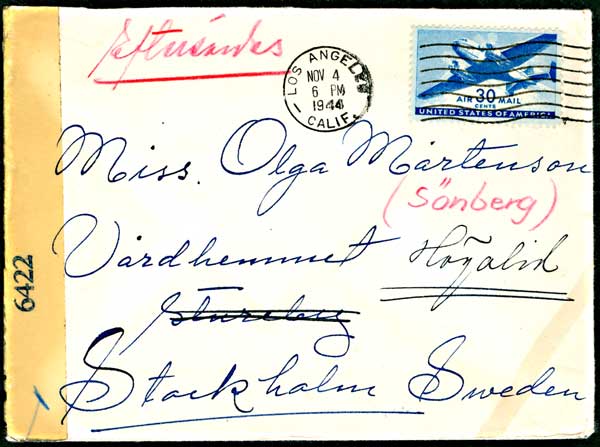 Eftersändes
LOS ANGELES
NOV 4
6 PM
1944
CALIF.
AIR 30 MAIL
CENTS
UNITED STATES OF AMERICA
Miss. Olga Mårtenson
(Sönberg)
Vårdhemmet Högalid
Stureby
Stockholm Sweden
6422